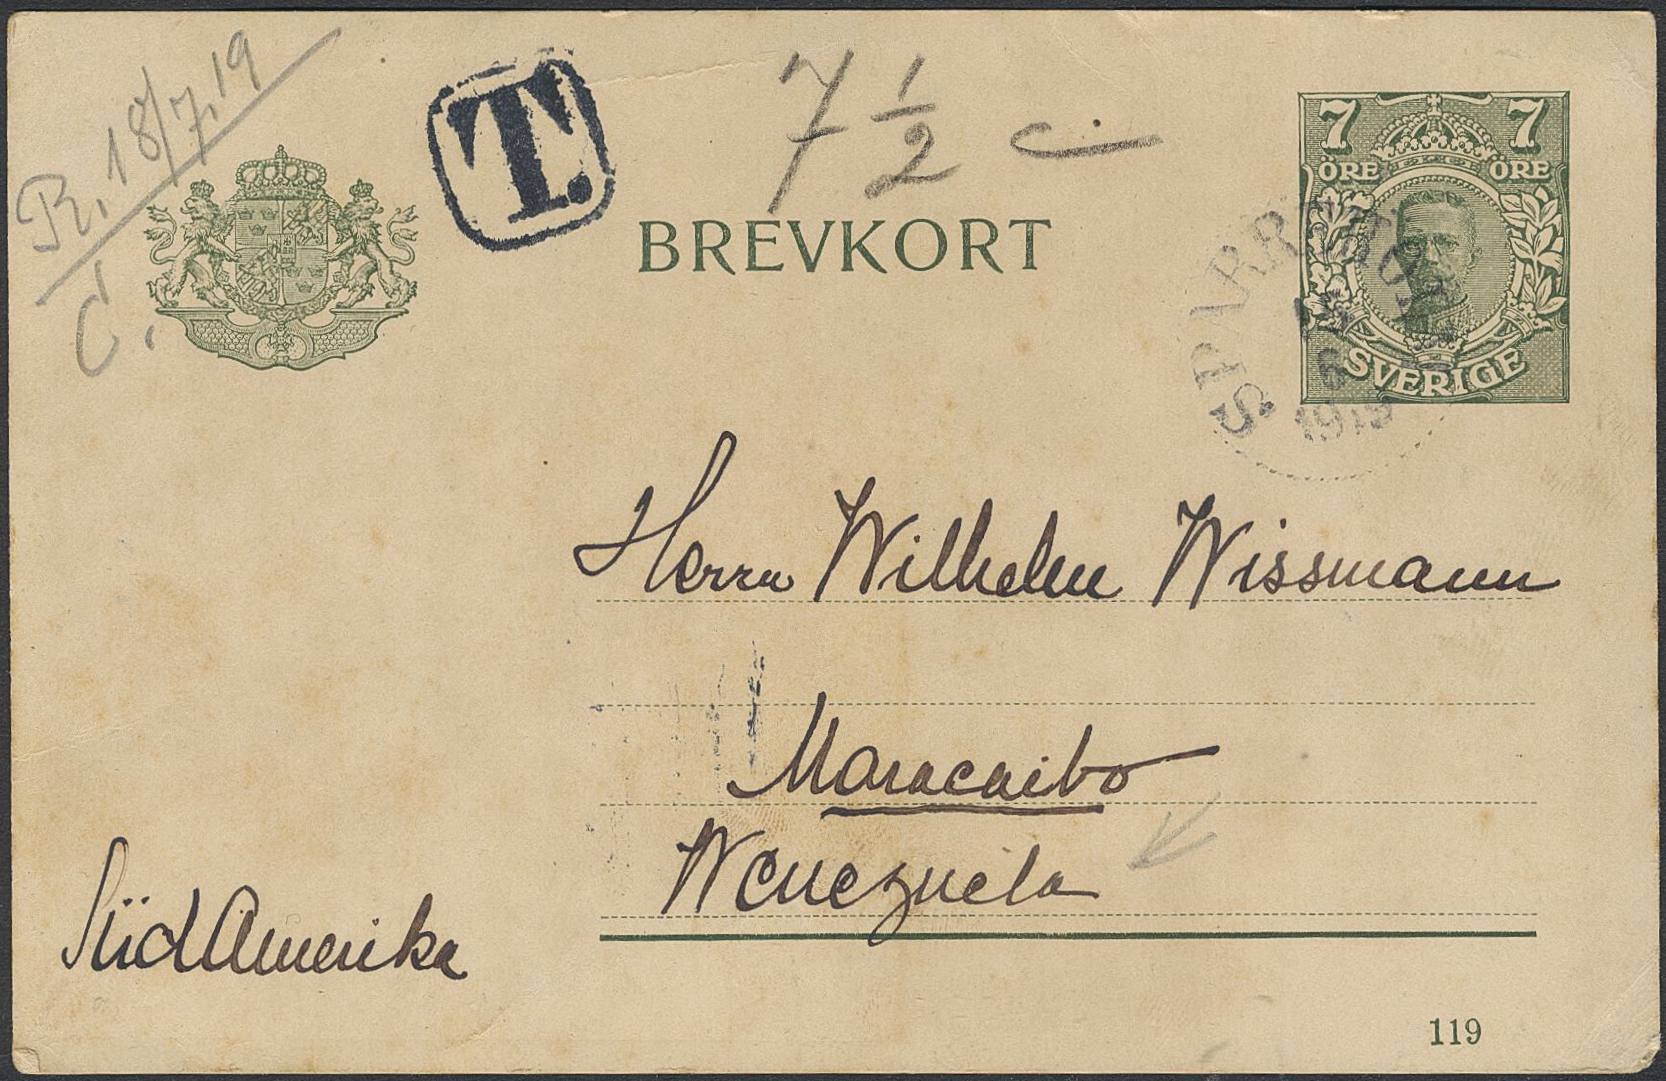 R. 18/7.19
C.
T.
7 1/2 c.
BREVKORT
7 7
ÖRE ÖRE
SVERIGE
SPARR
6
1919
Herrn Wilhelm Wissmann
Maracaibo
Wenezuela
SüdAmerika
119